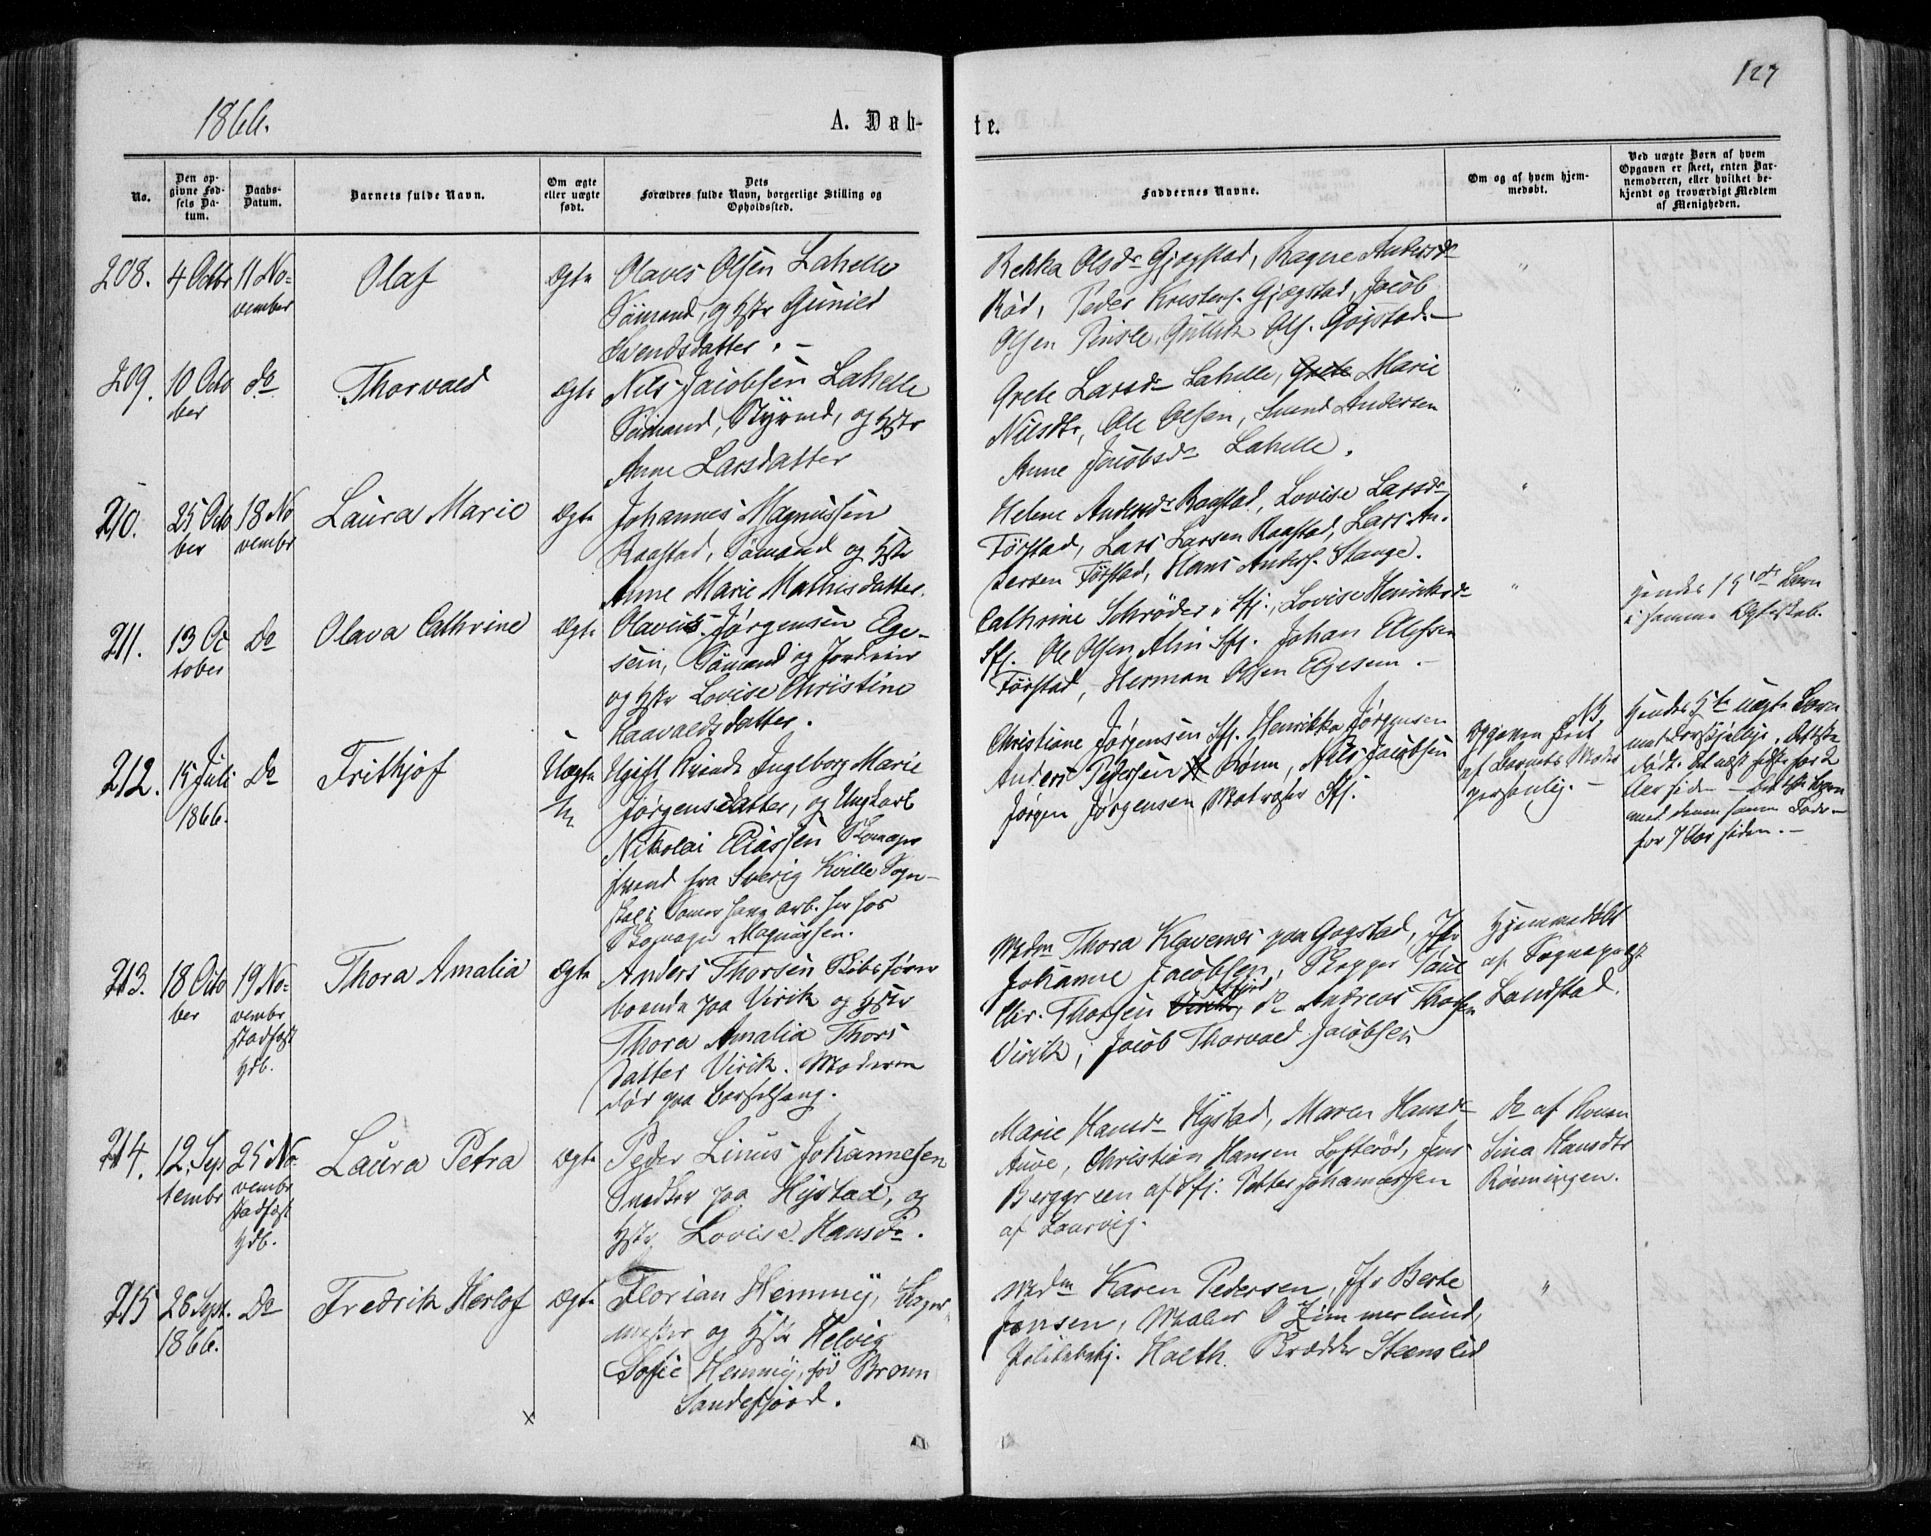 1866.
A. Døb-
te.
127
No.
Den op-
givne Fød-
sels Da-
tum.
Daabs-
Datum.
Barnets fulde Navn.
Om ægte
eller uægte
født.
Dets
Forældres fulde Navn, borgerlige Stilling og
Opholdssted.
Faddernes Navne.
Om og af hvem hjem-
medøbt.
Ved uægte Børn af hvem
Opgaven er skeet, enten Bar-
nemoderen, eller hvilket be-
kjendt og troværdigt Medlem
af Menigheden.
208.
4 Octbr
11 No-
vember
Olaf
Ægte
Olaves Olsen Lahelle
Sømand, og Hstr Gunild
Svendsdatter. -
Rekka Olsdr Gjogstad, Ragne Andersdr
Rød, Peder Kristens. Gjøgstad, Jacob
Olsen Pinsle, Gullik Ols. Gogstad. -
"
209.
10 Octo
ber
do
Thorvald
Ægte
Nils Jacobsen Lahelle
Sømand, Styrmd, og Hstr
Anne Larsdatter
Grete Larsdr Lahelle, Grete Marie
Nilsdtr, Ole Olsen, Svend Andersen
Anne Jacobsdr Lahelle.
"
210.
25 Octo
ber
18 No
vembr
Laura Marie
Ægte
Johannes Magnussen
Raastad, Sømand og Hstr
Anne Marie Mathisdatter.
Helene Andersdr Raastad, Lovise Larsdr
Førstad, Lars Larsen Raastad, Lars An-
dersen Førstad, Hans Anders. Stange.
"
211.
13 Oc
tober
Do
Olava Cathrine
Ægte
Olavus Jørgensen Ege-
sem, Sømand og Jordeier
og Hstr Lovise Christine
Haavaldsdatter.
Cathrine Schrøder, Sfj., Lovise Henriksdr
Sfj. Ole Olsen Alm Sfj. Johan Ellefsen
Førstad, Herman Olsen Egesem. -
"
Hendes 1ste Barn
i samme Ægteskab.
212.
15 Juli
1866.
Do
Frithjof
Uægte
Ugift Kvinde Ingeborg Marie
Jørgensdatter, og Ungkarl
Nikolai Eliassen Skomager
svend fra Sverig Kville Sogn-
Skomager Magnussen.
Christiane Jørgensen Sfj. Henrikka Jørgensen
Anders Pedersen Rønn, Nils Jacobsen
Jørgen Jørgensen Matroser Sfj.
NB
Opgaven skeet
af Barnets Moder
personlig. -
Hendes 5te uægte Barn
født. Det næst sidste for 2
Aar siden -
for 7 Aar siden. -
213.
18 Octo
ber
19 No-
vembr
stadfæst
Hdb.
Thora Amalia
Ægte
Anders Thorsen Skibsfører
boende paa Virik og Hstr
Thora Amalia Thors
datter Virik. Moderen
død paa Barselseng.
Mdm Thora Klavenes paa Gogstad, Jfr
Johanne Jacobsen, Skipper Paul
Chr. Thorsen Virik, Sfjord do Andreas Thorsen
Virik, Jacob Thorvald Jacobsen
Hjemmedøbt
af Sognepræst
Landstad.
214.
12 Sep
tembr
25 No-
vembr
stadfæst
Hdb.
Laura Petra
Ægte
Peder Linus Johannesen
Snedker paa Hystad, og
Hstr Lovise Hansdr.
Marie Hansdr Hystad, Maren Hansdr
Auve, Christian Hansen Lofterød, Jens
Berggreen af Sfj. Petter Johannessen
af Laurvig.
Do af Konen
Lina Hansdtr
Rønningen.
215
26 Sept.
1866.
Do
Fredrik Herlof
Ægte
Florian Hemmy, Bager
mester og Hstr Helvig
Sofie Hemmy, fød Bronn
Sandefjord.
Mdm Karen Pedersen, Jfr Berte
Jansen, Maler O Zimmerlund,
Politibetj. Holth. Brædder Steenslid
"
x